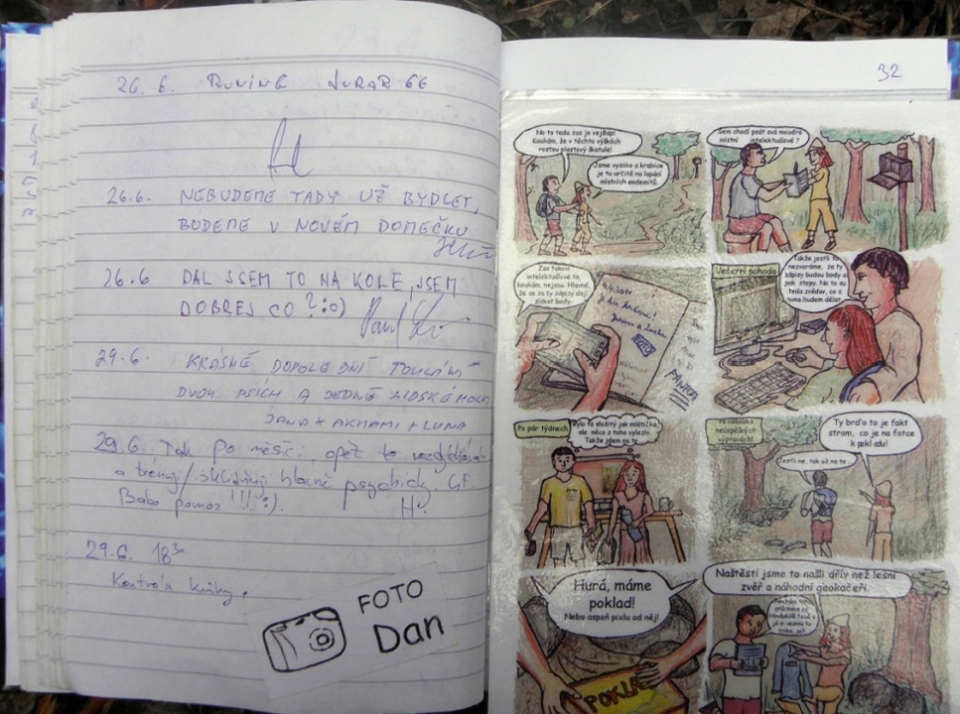 26.6. RUNING JURAR 66
26.6. NEBUDEME TADY UŽ BYDLET,
BUDEME V NOVÉM DOMEČKU
26.6 DAL JSEM TO NA KOLE, JSEM
DOBREJ CO ?:o)
29.6. KRÁSNÉ DOPOLEDNÍ
DVOU PSÍCH A JEDNÉ LIDSKÉ
JANA + + LUNA
29.6. Tak po měsíci, opět to
a trénuj hlavně psychicky. GF.
Babo pomoz !!! :)
29.6. 18³⁰
Kontrola knihy.
FOTO
Dan
32
No to teda zas je vejšlap!
Koukám, že v těchto výškách
rostou plastový škatule!
Jsme vysoko a krabice
je tu určitě na lapání
místních endemitů.
Sem chodí psát svá moudra
místní intelektuálové ?
Zas takoví
intelektuálové to,
koukám, nejsou. Hlavně,
že se za ty zápisy dají
získat body.
Večerní pohoda
Takže jestli to
nezvoráme, za ty
zápisy budou body a
pak stopy. No to su
teda zvědav, co s
nima budem dělat.
Po pár týdnech
Bylo to složitý jak mřížka,
ale něco z toho vylezlo.
Takže jdem na to.
Po několika
neúspěšných
výpravách!
Ty brďo to je fakt
strom, co je na fotce
k pokladu!
Jestli ne, tak už na to
Hurá, máme
poklad!
Nebo aspoň pixlu od něj!
POKLA
Naštěstí jsme to našli dřív než lesní
zvěř a náhodní geokačeři.